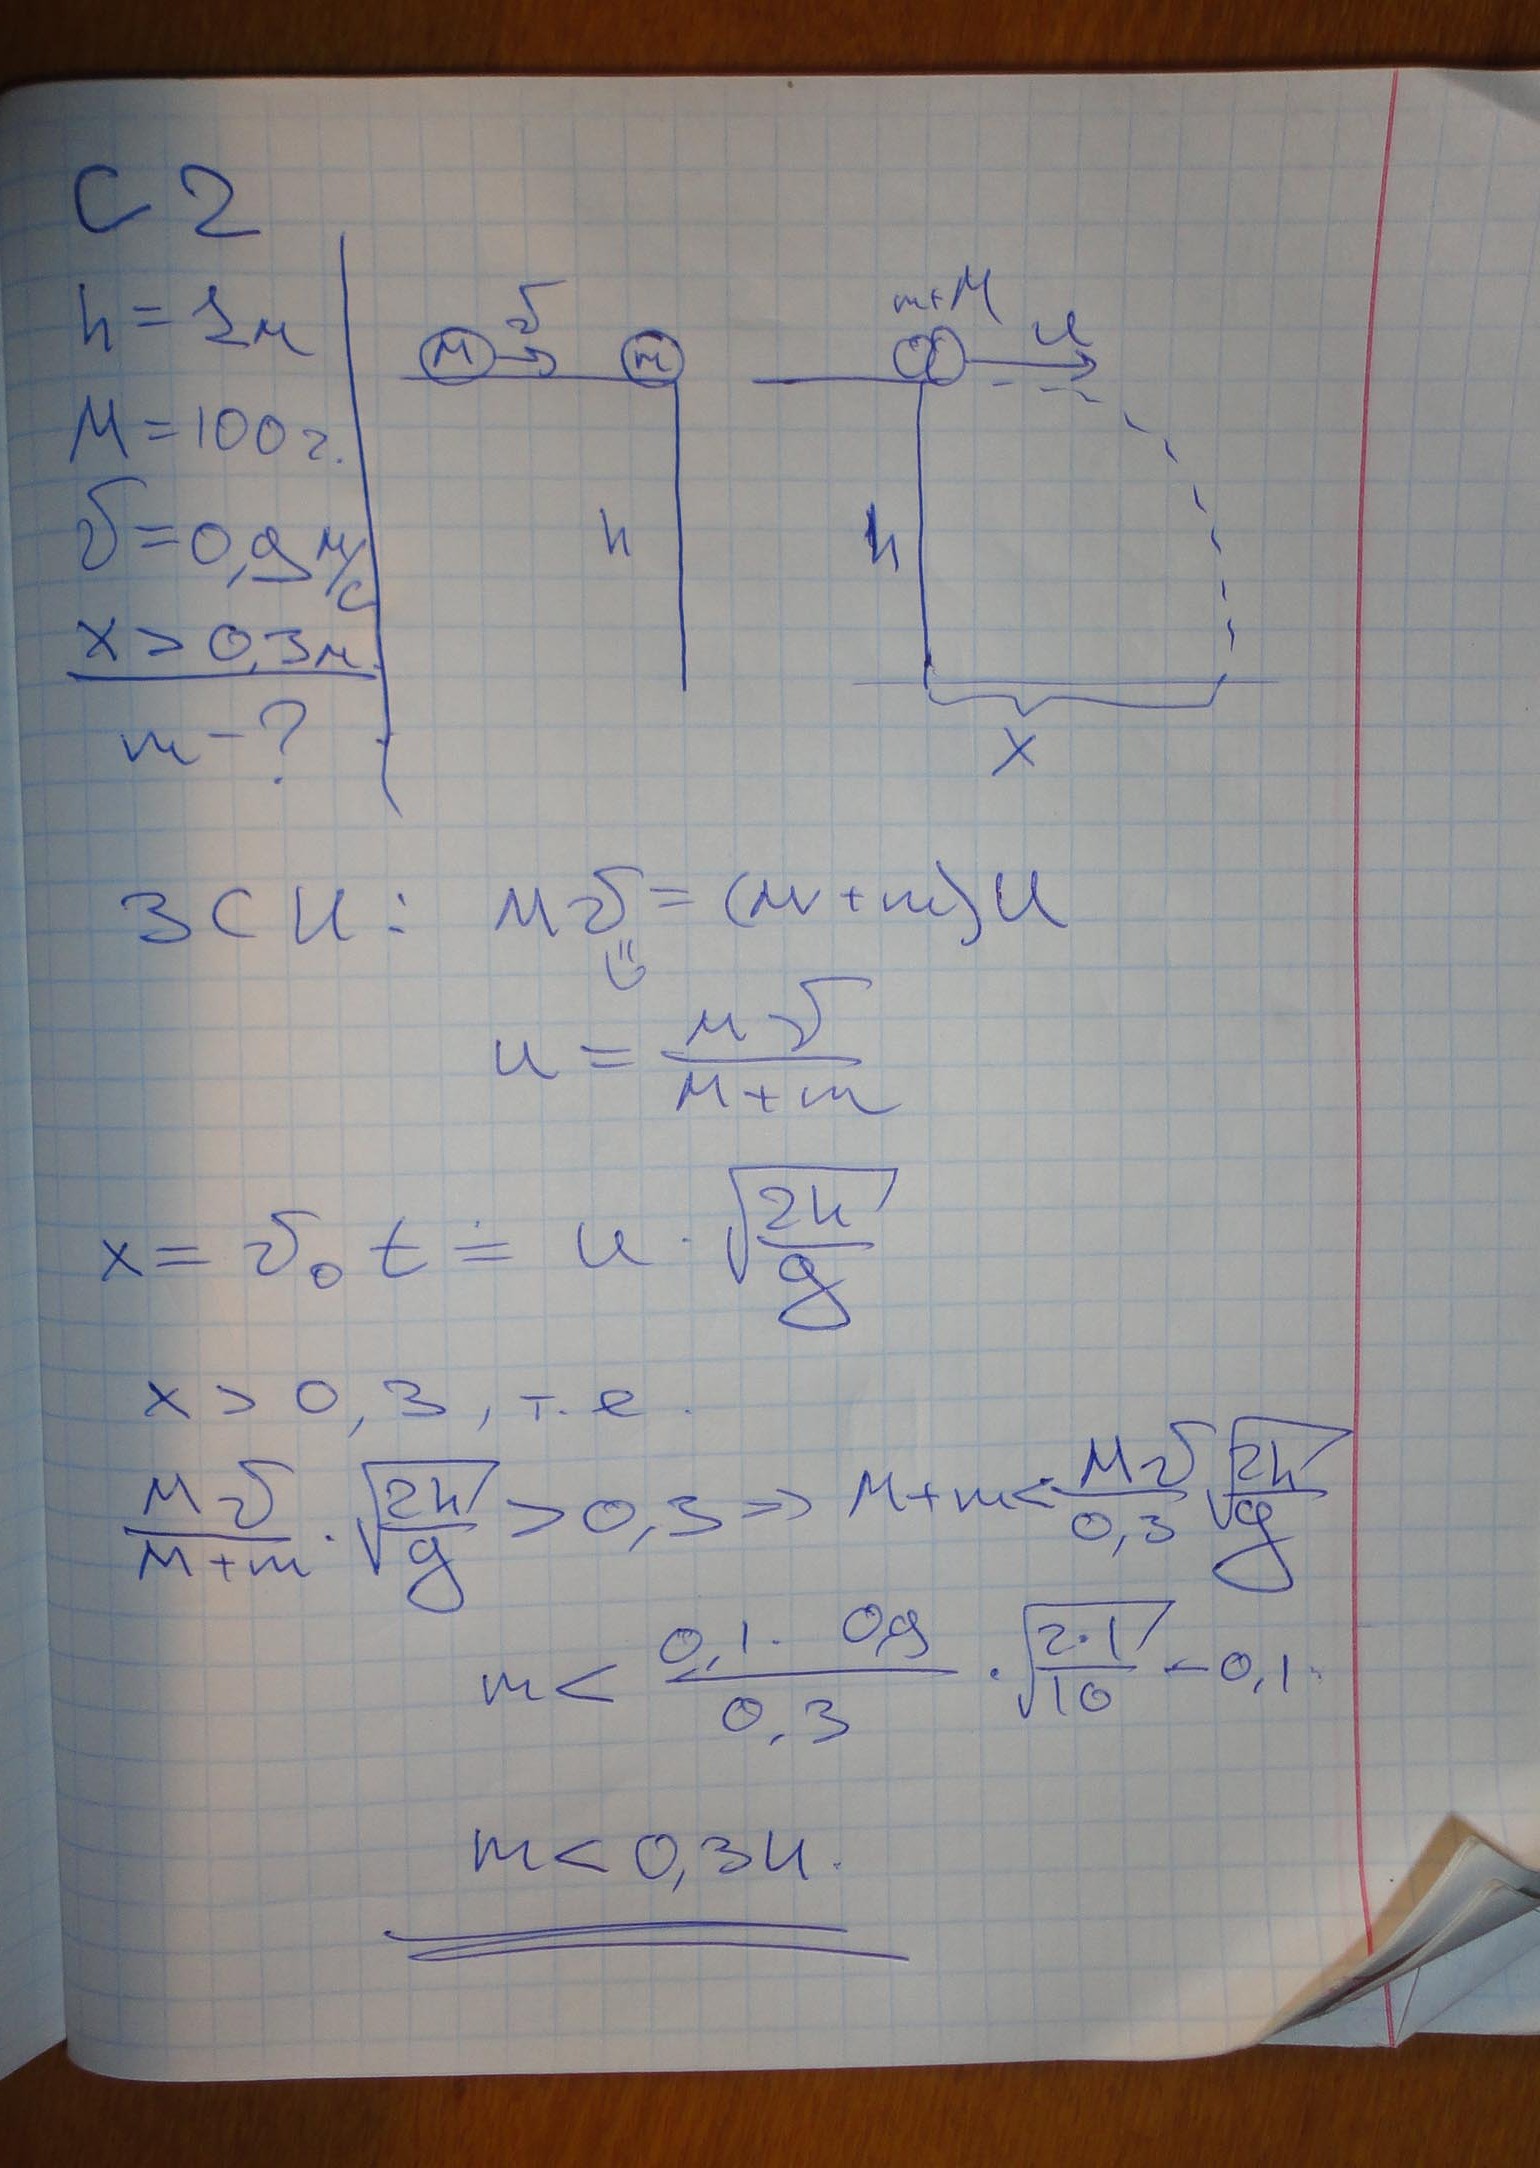 С2
h = 1м
M = 100г.
υ = 0,9 м/с
x > 0,3м.
m - ?
υ
M
m
h
m+M
u
h
x
ЗСИ: Mυ = (M+m)u
u = Mυ / (M+m)
x = υ₀t = u · √(2h/g)
x > 0,3, т.е.
Mυ/(M+m) · √(2h/g) > 0,3 => M+m < Mυ/0,3 √(2h/g)
m < (0,1 · 0,9)/0,3 · √(2·1/10) - 0,1.